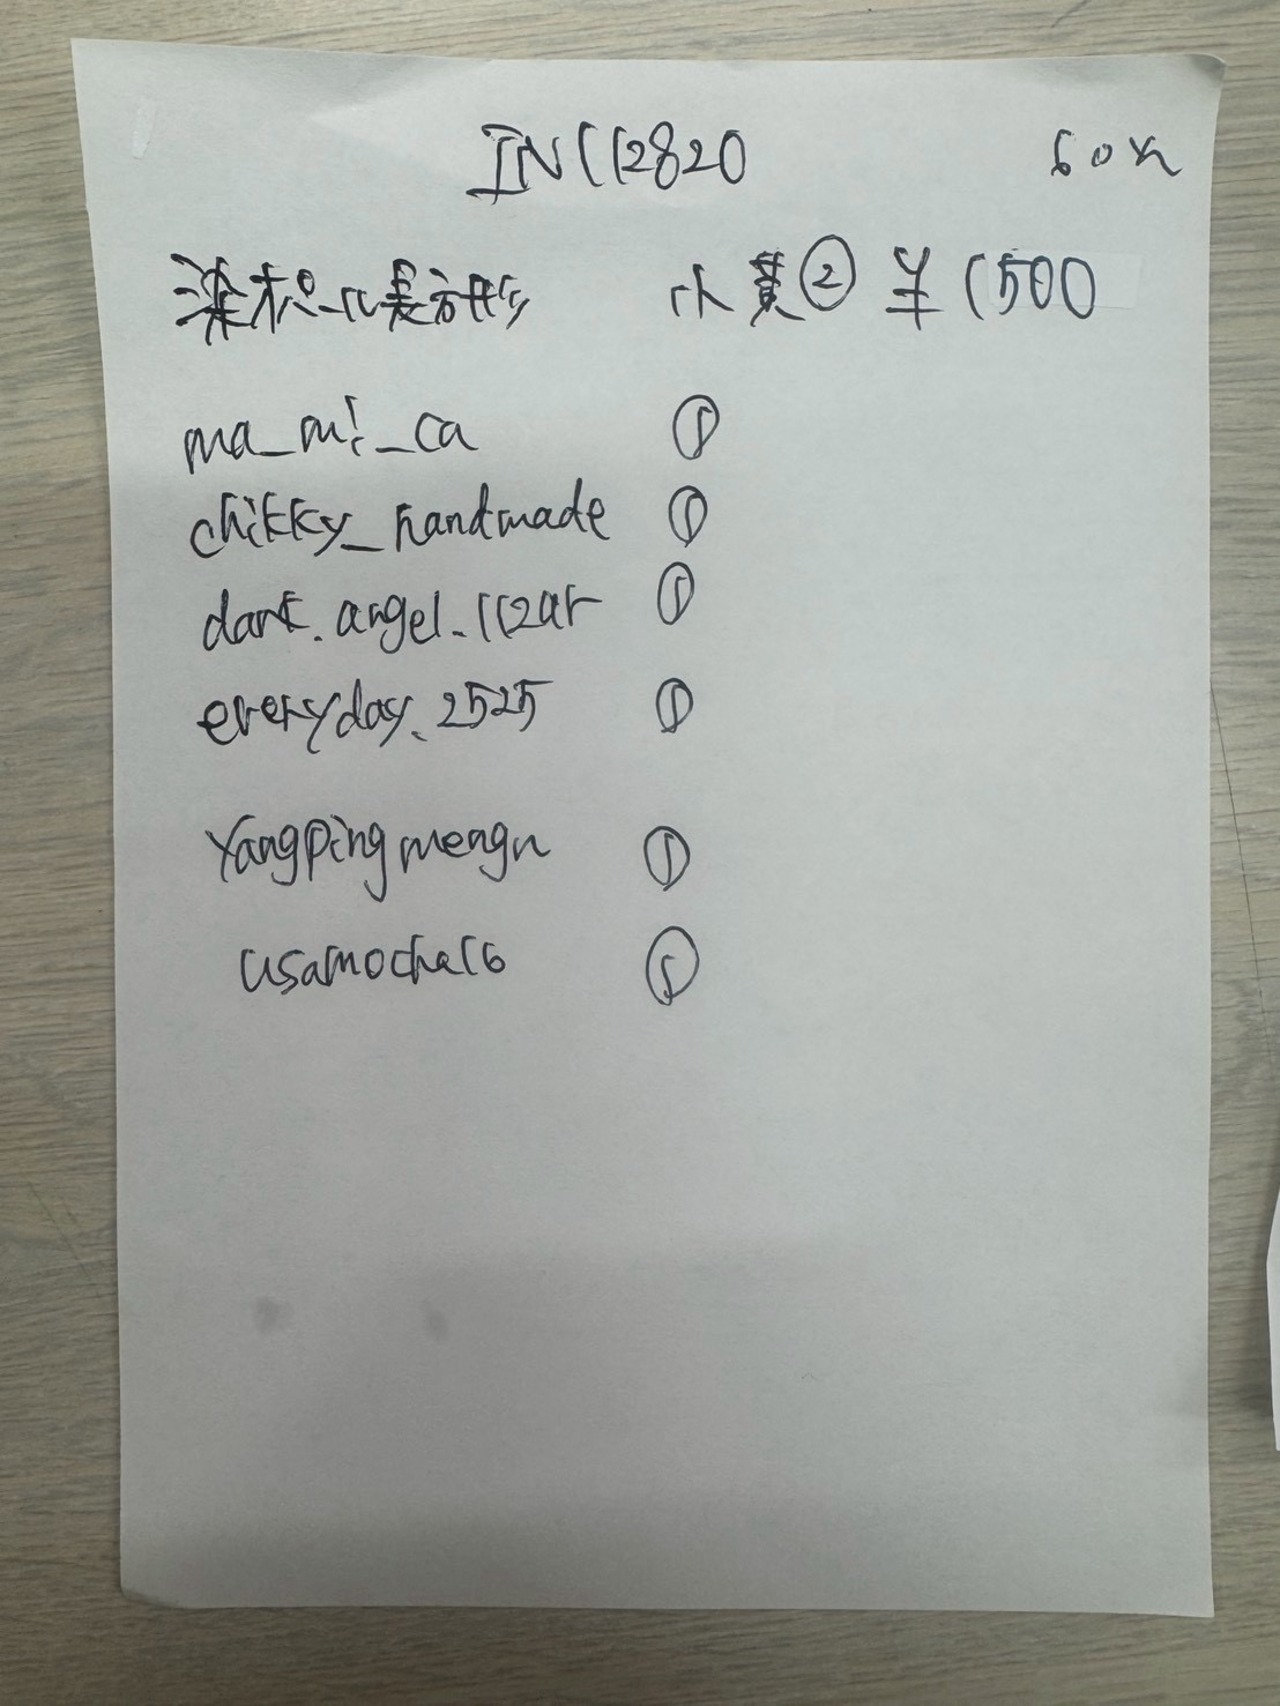 IN112820 60大
小黄② ¥1500
ma_mi_ca ①
chikky_handmade ①
dark.angel.112ar ①
everyday.2525 ①
Yangpingmengn ①
usamocha16 ①